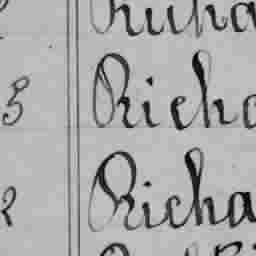 Richa
5 Richa
2 Richa